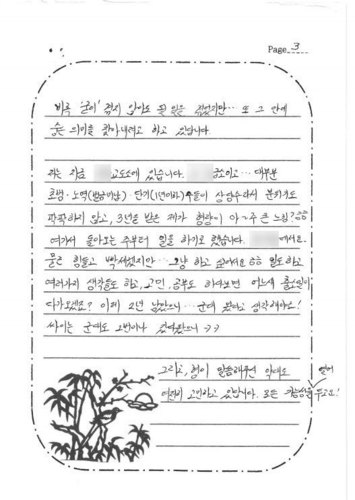 Page 3
비록 '굳이' 겪지 않아도 될 일을 겪었지만… 또 그 안에
숨은 의미를 찾아내려고 하고 있답니다.
저는 지금 교도소에 있습니다. 소이고… 대부분
초범·노역(벌금미납) 단기(1년이하) 수들이 상당수라서 분위기도
팍팍하지 않고, 3년을 받은 제가 형량이 아~주 큰 느낌? ㅎㅎ
여기서 돌아오는 주부터 일을 하기로 했습니다. 에서요.
물론 힘들고 빡세겠지만… 그냥 하고 싶어서요 ㅎㅎ 일도 하고
여러가지 생각들도 하고, 고민, 공부도 하다보면 어느새 출소일이
다가오겠죠? 이제 2년 남았으니… 군대 왔다고 생각해야죠!
싸이는 군대도 2번이나 갔다왔으니 ㅋㅋ
그리고 형이 말씀해주신 약대도
여전히 고민하고 있답니다. 모든 가능성을 열어 두고요!